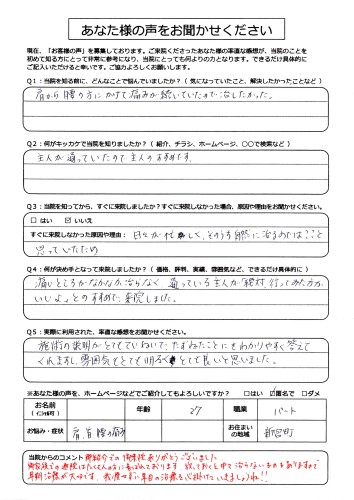 あなた様の声をお聞かせください
現在、「お客様の声」を募集しております。ご来院くださったあなた様の率直な感想が、当院のことを
初めて知る方にとって非常に参考になり、当院にとっても何よりの力となります。できるだけ具体的に
ご記入いただけると幸いです。ご協力よろしくお願いします。
Q1:当院を知る前に、どんなことで悩んでいましたか?( 気になっていたこと、解決したかったことなど )
肩から腰の方にかけて痛みが続いていたので治したかった。
Q2:何がキッカケで当院を知りましたか?( 紹介、チラシ、ホームページ、〇〇で検索など )
主人が通っていたので主人のすすめです。
Q3:当院を知ってから、すぐに来院しましたか?すぐに来院しなかった場合、原因や理由をお聞かせください。
□ はい ☑ いいえ
すぐに来院しなかった原因や理由: 日々が忙しく、そのうち自然に治るのでは?と
思っていたため
Q4:何が決め手となって来院しましたか?( 価格、評判、実績、雰囲気など、できるだけ具体的に )
痛いところがなかなか治らなく 通っている主人が「絶対 行ってみた方が
いいよ」とのすすめで、来院しました。
Q5:実際に利用された、率直な感想をお聞かせください。
施術の説明がとてもていねいで、たずねたことにもわかりやすく答えて
くれますし、雰囲気もとても明るくとても良いと思いました。
※あなた様の声を、ホームページなどでご紹介してもよろしいですか? □はい ☑匿名で □ダメ
お名前
(イニシャル可)
年齢
27
職業
パート
お悩み・症状
肩、首、腰の痛み
お住まい
の地域
新宮町
当院からのコメント
御紹介での御来院ありがとうございました。